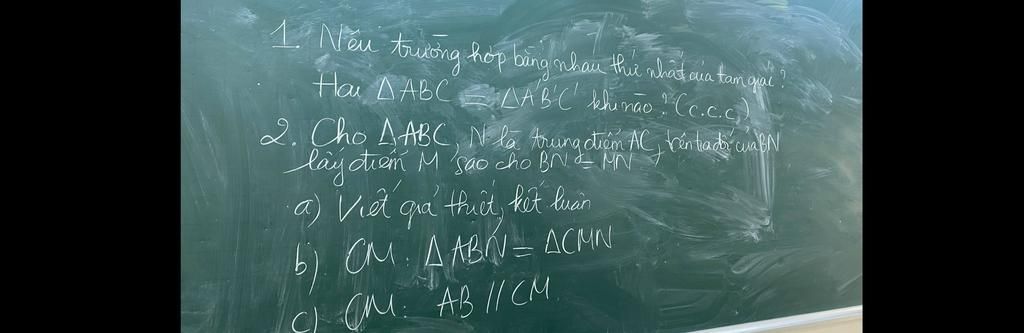 1. Nêu trường hợp bằng nhau thứ nhất của tam giác?
Hai ΔABC = ΔA'B'C' khi nào? (c.c.c)
2. Cho ΔABC, N là trung điểm AC, trên tia đối của BN
lấy điểm M sao cho BN = MN
a) Viết giả thiết, kết luận
b) CM: ΔABN = ΔCMN
c) CM: AB // CM.